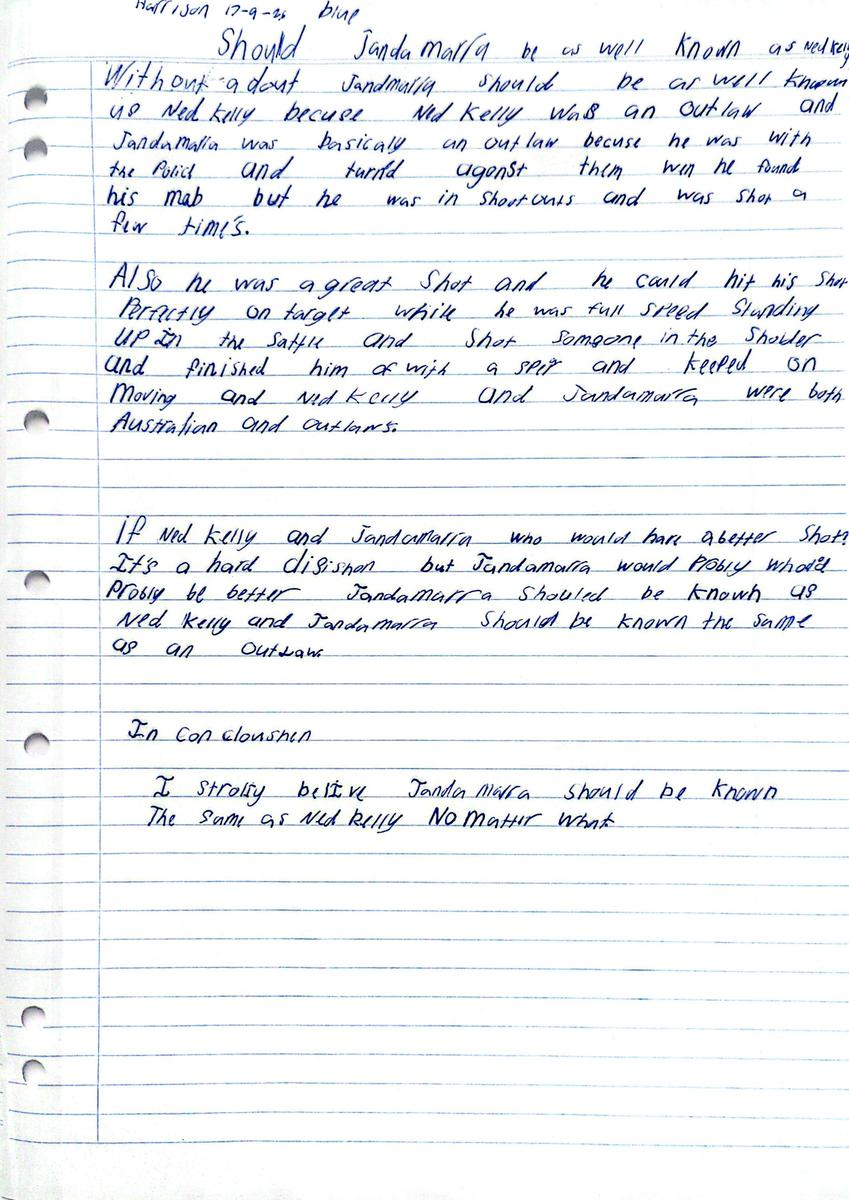 Harrison 17-9-26 blue
Should Jandamarra be as well known as Ned Kelly
Without a dout Jandmarra should be as well known
as Ned Kelly becuse Ned Kelly was an outlaw and
Jandamarra was basicaly an outlaw becuse he was with
the Police and turnd agonst them wen he found
his mab but he was in shootouts and was shot a
few time's.
Also he was a great shot and he could hit his shot
Perfectly on target while he was full speed standing
UP In the sattle and shot someone in the sholder
and finished him of with a sper and keeped on
Moving and Ned Kelly and Jandamarra were both
Australian and outlaws.
if Ned Kelly and Jandamarra who would have a better shot?
It's a hard disishon but Jandamarra would Probly
Probly be better Jandamarra shouled be known as
Ned Kelly and Jandamarra should be known the same
as an outlaw
In Concloushen
I strolsy belive Jandamarra should be known
The same as Ned Kelly No matter what